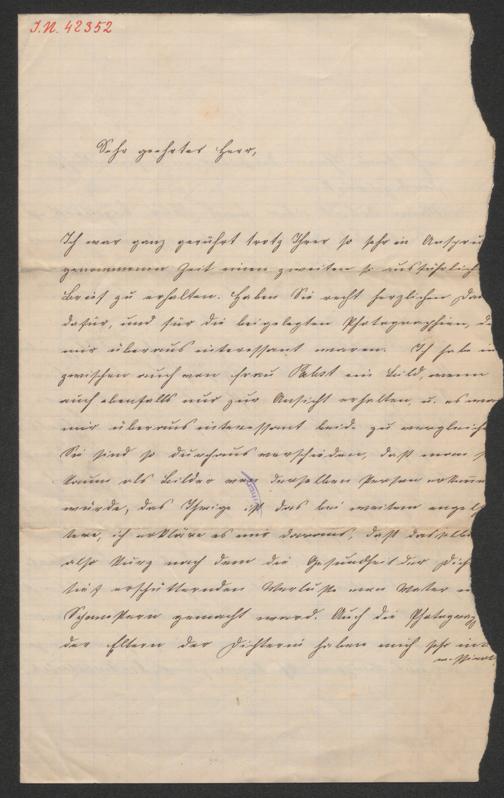 I.N. 42352
Sehr geehrter Herr,
Ich war ganz gerührt trotz Ihrer so sehr in Anspru
genommenen Zeit einen zweiten so ausführlich
Brief zu erhalten. Haben Sie recht herzlichen Dan
dafür, und für die beigelegten Photographien, d
mir überaus interessant waren. Ich habe in
zwischen auch von Frau Pabst ein Bild, wenn
auch ebenfalls nur zur Ansicht erhalten, u. es war
mir überaus interessant beide zu vergleiche
Sie sind so durchaus verschieden, daß man s
kaum als Bilder von derselben Person erkenn
würde, das Ihrige ist das bei weitem
ich erkläre es mir daraus, daß dasselbe
also kurz nach dem die Gesundheit der Dich
tief erschütternden Verluste von Vater u
Schwestern gemacht ward. Auch die Photograp
der Eltern der Dichterin haben mich sehr in